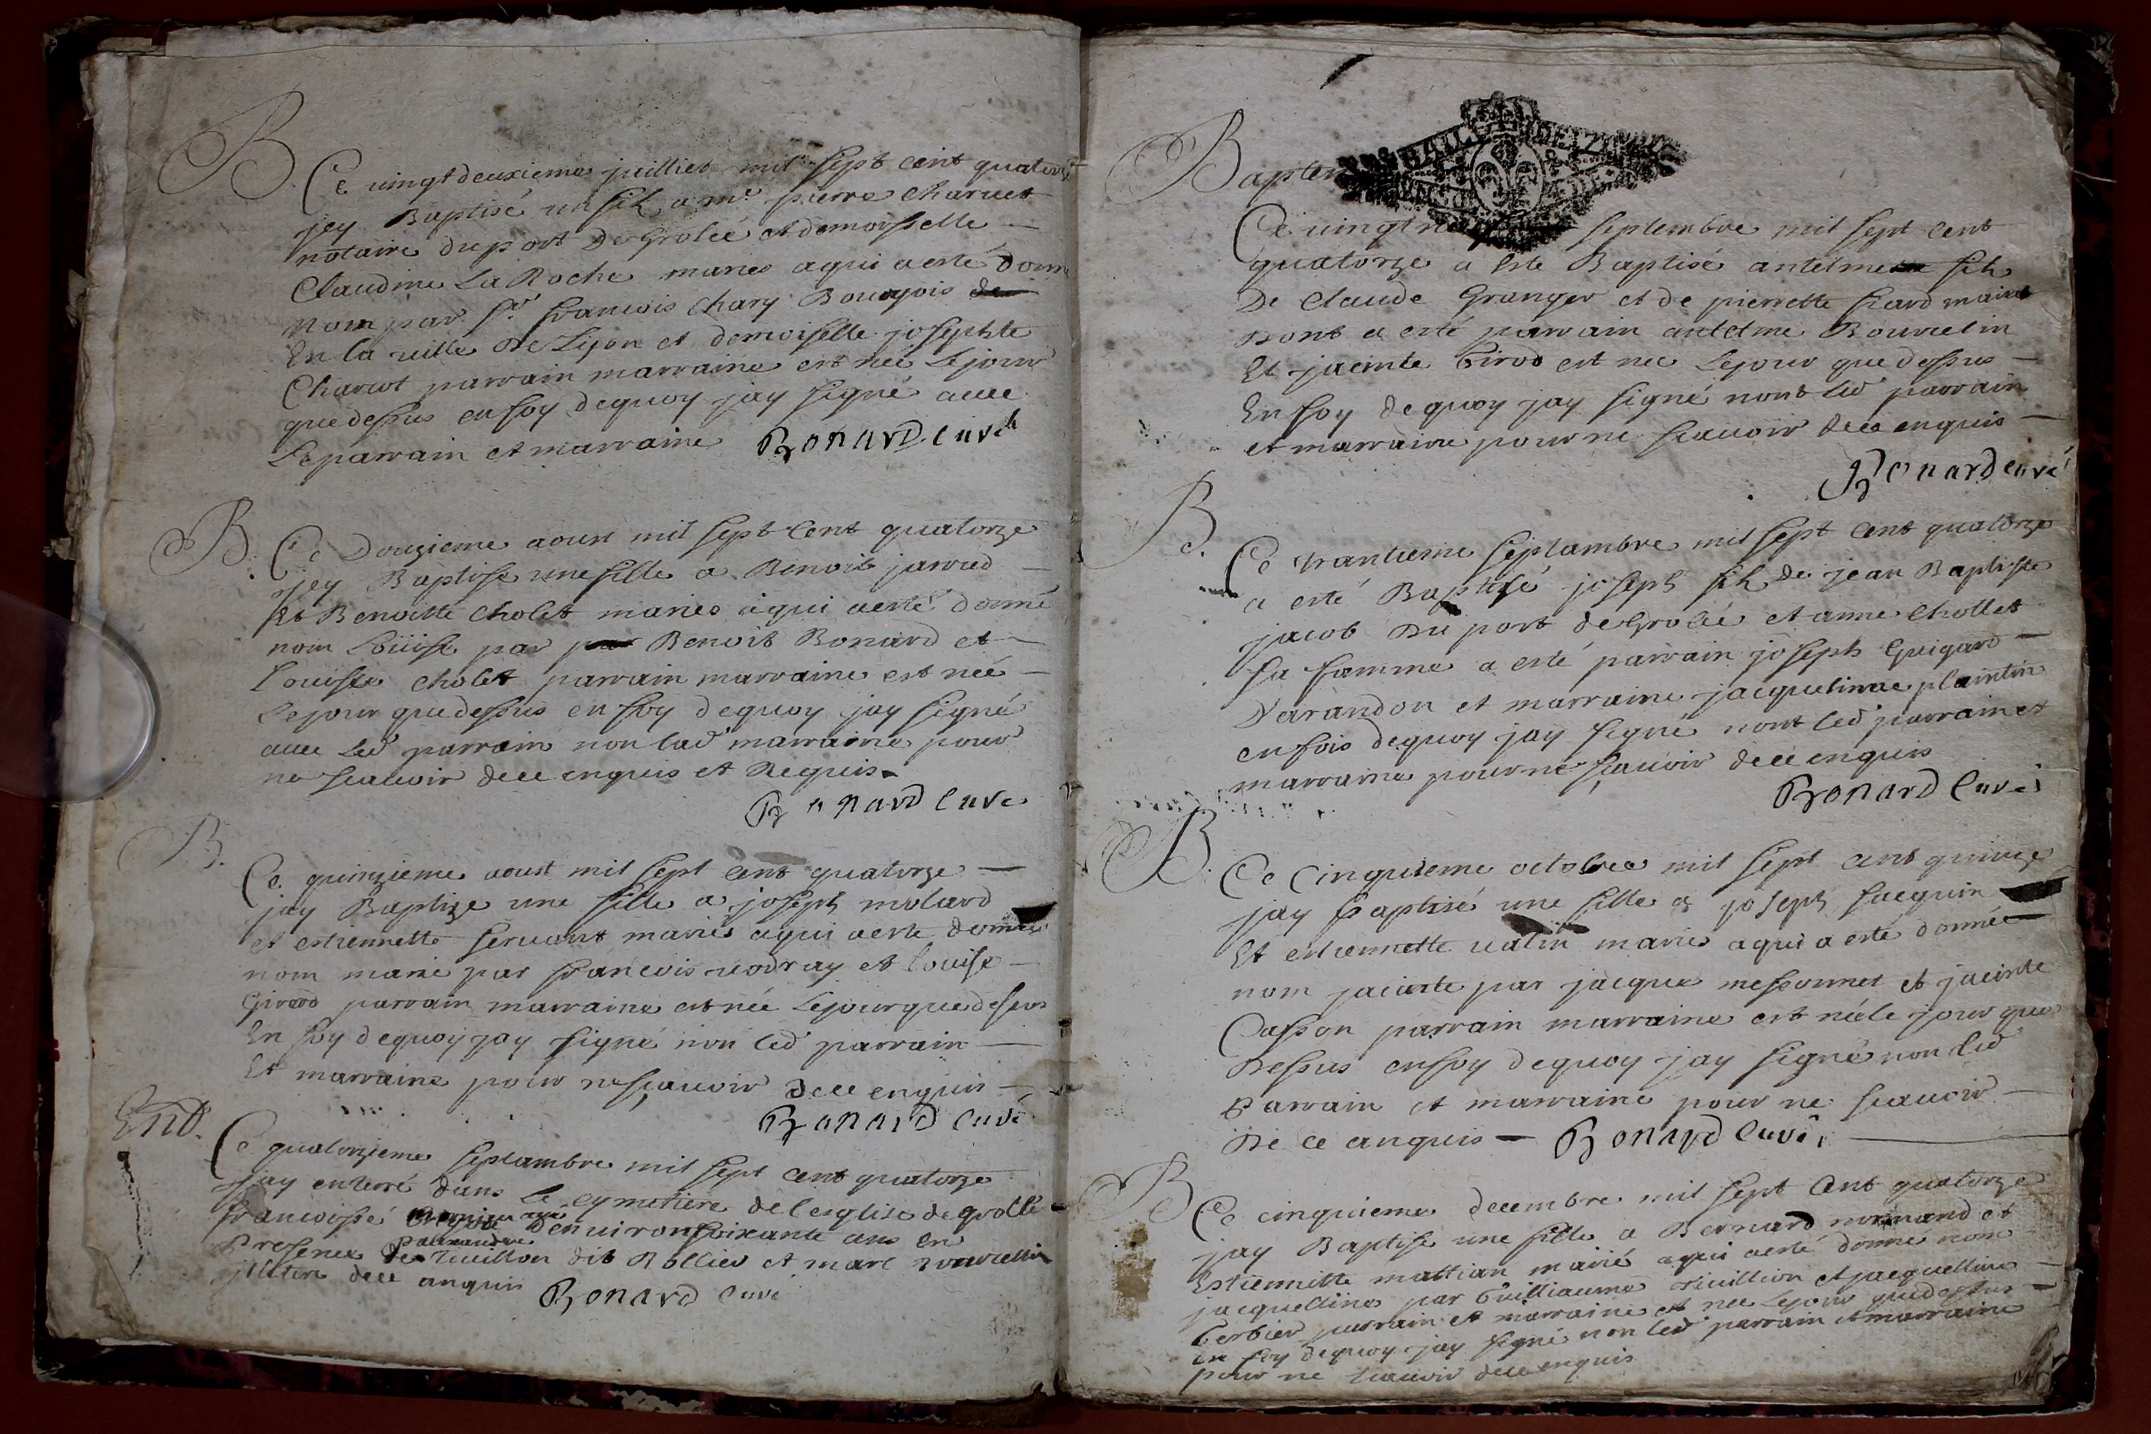 B
Ce uingt deuxieme juilliet mil sept cent quatorze
jey Baptisé un fils a mr pierre Charuet
notaire du port De Grolée et demoisselle
Claudine La Roche maries aqui a esté donné
nom par sr francois Chary Bourgois de
En la uille De Lyon et demoiselle josephte
Charuet parrain marraine est née Lejour
que dessus en foy dequoy jay signé auec
Le parrain et marraine Bonard curé
B
Ce Douzieme aoust mil sept cent quatorze
jey Baptisse une fille a Benoit jarrud
Et Benoitte Cholet maries aqui aesté donné
nom Loüise par par Benoit Bonard et
Louisse Cholet parrain marraine est née
Lejour que dessus en foy dequoy jay signé
auec Led parrain non lad marraine pour
ne scauoir dece enquis et Requis
Bonard Curé
B.
Ce quinzieme aoust mil sept cent quatorze
jay Baptize une fille a joseph molard
et estiennette seruant maries aqui aesté donné
nom marie par francois uodray et Louise
Girod parrain marraine est née Lejour que dessus
En foy dequoy jay signé non Led parrain
Et marraine pour ne scauoir Dece enquis
Bonard Curé
Ent.
Ce quatorzieme septambre mil sept cent quatorze
jay enterré dans Le cymetiere de l'esglise de grollé
francoisse agée Denuiron soixante ans En
Presence De teuillon dit Rollier et marc Bourcellin
illiteré dece anquis Bonard Curé
Baptem
Ce uingt septembre mil sept cent
quatorze a Este Baptisé antelme fils
De Claude Granger et de pierrette
Dont a esté parrain antelme Bourcelin
Et jacinte Girod est née Lejour que dessus
En foy dequoy jay signé nont Led parrain
et marraine pour ne scauoir Dece enquis
Bonard curé
B.
Ce trantieme septambre mil sept cent quatorze
a esté Baptisé joseph fils de jean Baptiste
jacob Du port de Grolée et anne Chollet
sa famme a esté parrain joseph Guigard
Darandon et marraine jacquelinne plaintin
en fois dequoy jay signé nont Led parrain et
marraine pour ne scauoir dece enquis
Bonard Curé
B.
Ce Cinquieme octobre mil sept cent quinze
jay Baptisé une fille a joseph jacquin
Et estiennette uatin maries aqui a esté donnée
nom jacinte par jacque messonnet et jacinte
Casson parrain marraine est née le jour que
Dessus en foy dequoy jay signé non Led
Parrain et marraine pour ne scauoir
De ce anquis Bonard Curé
B
Ce cinquieme decembre mil sept cent quatorze
jay Baptisse une fille a Bernard normand et
Estiennette mattian marié aqui aesté donné nom
jacquelline par Guilliaume teuillion et jacquelline
Cerbier parrain et marraine est née Lejour que dessus
en foy dequoy jay signé non Led parrain et marraine
pour ne scauoir dece enquis